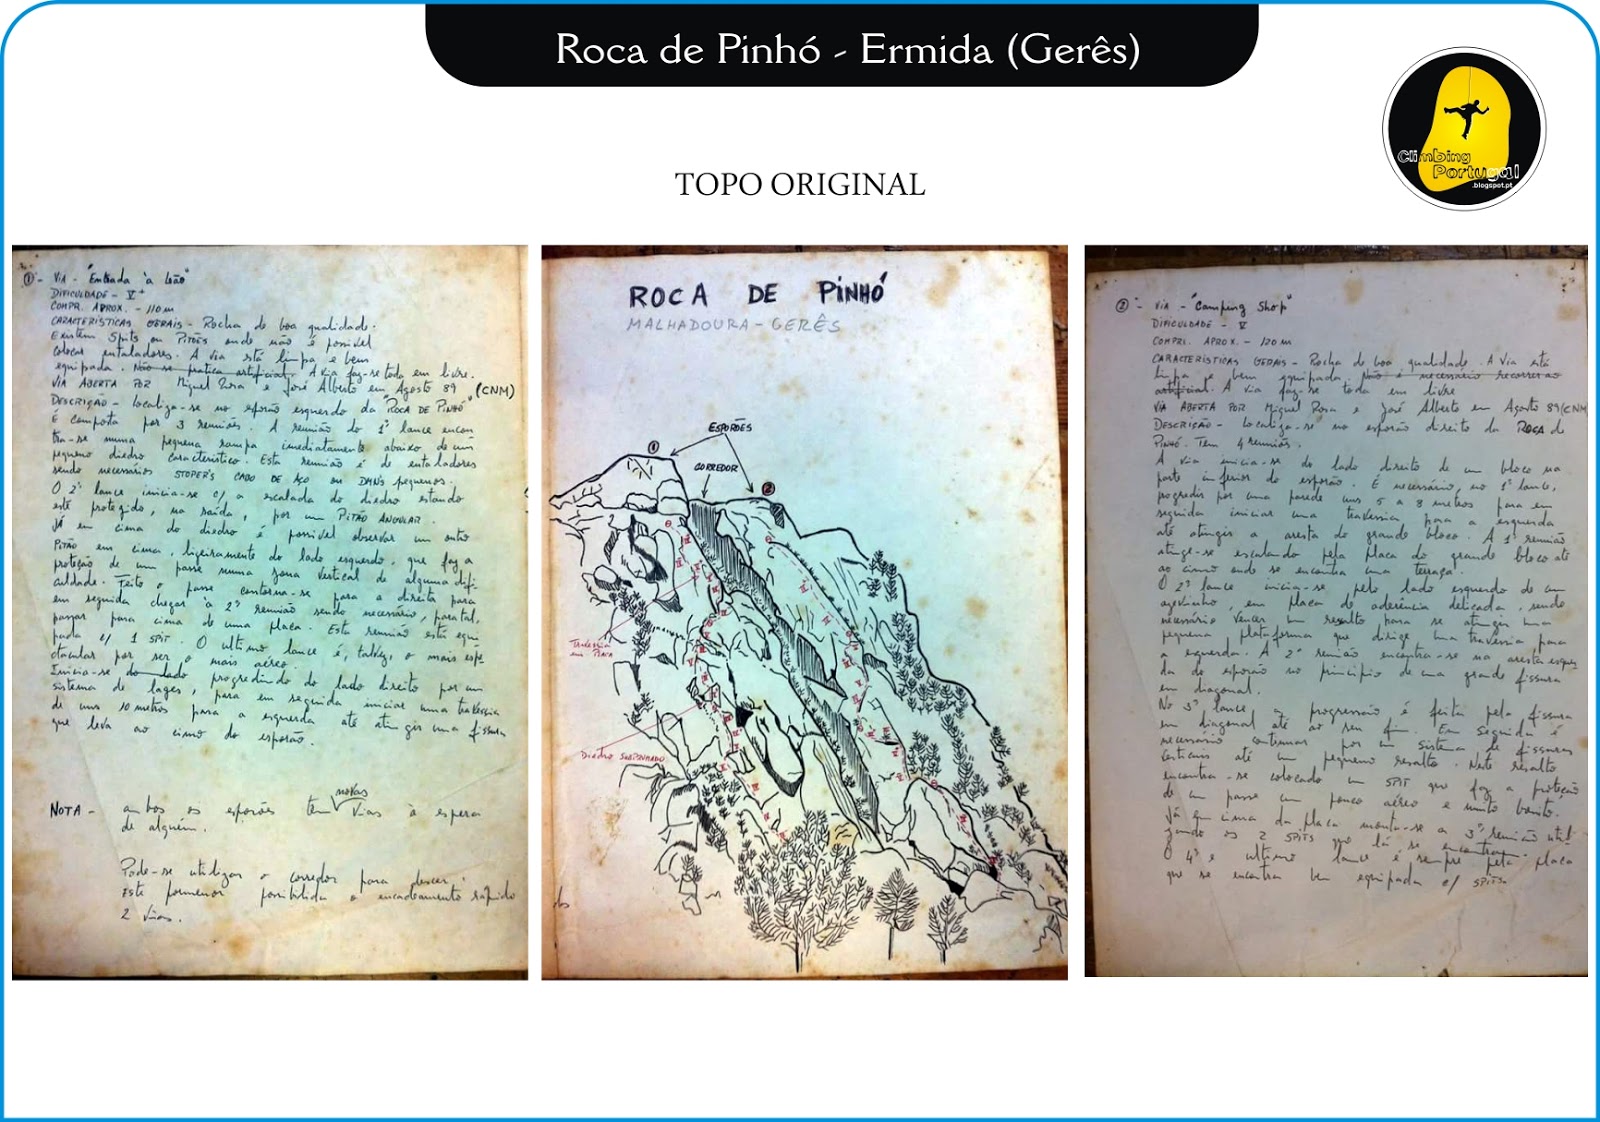 Roca de Pinhó - Ermida (Gerês)
Climbing
Portugal
.blogspot.pt
TOPO ORIGINAL
① - VIA - "Entrada à leão"
DIFICULDADE - V+
COMPR. APROX. - 110 m
CARACTERÍSTICAS GERAIS - Rocha de boa qualidade.
Existem Spits ou PITÕES onde não é possivel
colocar entaladores. A via está limpa e bem
equipada. Não se pratica artificial. A via faz-se toda em livre.
VIA ABERTA POR Miguel Rosa e José Alberto em Agosto 89 (CNM)
DESCRIÇÃO - Localiza-se no esporão esquerdo da "ROCA DE PINHÓ"
É composta por 3 reuniões. A reunião do 1º lance encon
tra-se numa pequena rampa imediatamente abaixo de um
pequeno diedro característico. Esta reunião é de entaladores
sendo necessários STOPER'S CABO DE AÇO ou pequenos.
O 2º lance inicia-se c/ a escalada do diedro estando
este protegido, na saída, por um PITÃO ANGULAR.
Já em cima do diedro é possivel observar um outro
PITÃO em cima, ligeiramente do lado esquerdo, que faz a
proteção de um passe numa zona vertical de alguma difi-
culdade. Feito o passe contorna-se para a direita para
em seguida chegar à 2ª reunião sendo necessário, para tal,
passar para cima de uma placa. Esta reunião está equi
pada c/ 1 SPIT. O ultimo lance é, talvez, o mais espe
ctacular por ser o mais aéreo.
Inicia-se do lado progredindo do lado direito por um
sistema de lages, para em seguida iniciar uma travessia
de uns 10 metros para a esquerda até atingir uma fissura
que leva ao cimo do esporão.
NOTA - ambos os esporões tem novas vias à espera
de alguém.
Pode-se utilizar o corredor para descer.
Este pormenor possibilita o encadeamento rápido
2 vias.
ROCA DE PINHÓ
MALHADOURA - GERÊS
ESPORÕES
①
CORREDOR
②
Travessia
em PLACA
Diedro SUBPRUMADO
② - VIA - "Camping Shop"
DIFICULDADE - V
COMPRI. APROX. - 120 m
CARACTERÍSTICAS GERAIS - Rocha de boa qualidade. A via está
limpa e bem equipada. Não é necessário recorrer ao
artificial. A via faz-se toda em livre
VIA ABERTA POR Miguel Rosa e José Alberto em Agosto 89 (CNM
DESCRIÇÃO - Localiza-se no esporão direito da ROCA de
PINHÓ. Tem 4 reuniões.
A via inicia-se do lado direito de um bloco na
parte inferior do esporão. É necessário, no 1º lance,
progredir por uma parede uns 5 a 8 metros para em
seguida iniciar uma travessia para a esquerda
até atingir a aresta do grande bloco. A 1ª reunião
atinge-se escalando pela placa do grande bloco até
ao cimo onde se encontra uma terraça.
O 2º lance inicia-se, pelo lado esquerdo de um
azevinho, em placa de aderência delicada, sendo
necessário vencer um resalto para se atingir uma
pequena plataforma que dirige uma travessia para
a esquerda. A 2ª reunião encontra-se na aresta esquer
da do esporão no principio de uma grande fissura
em diagonal.
No 3º lance a progressão é feita pela fissura
em diagonal até ao seu fim. Em seguida é
necessário continuar por um sistema de fissuras
verticais até um pequeno resalto. Neste resalto
encontra-se colocado um SPIT que faz a proteção
de um passe um pouco aéreo e muito bonito.
Já em cima da placa monta-se a 3ª reunião utili
zando os 2 SPITS que lá se encontram.
O 4º e ultimo lance é sempre pela placa
que se encontra bem equipada c/ SPITS.